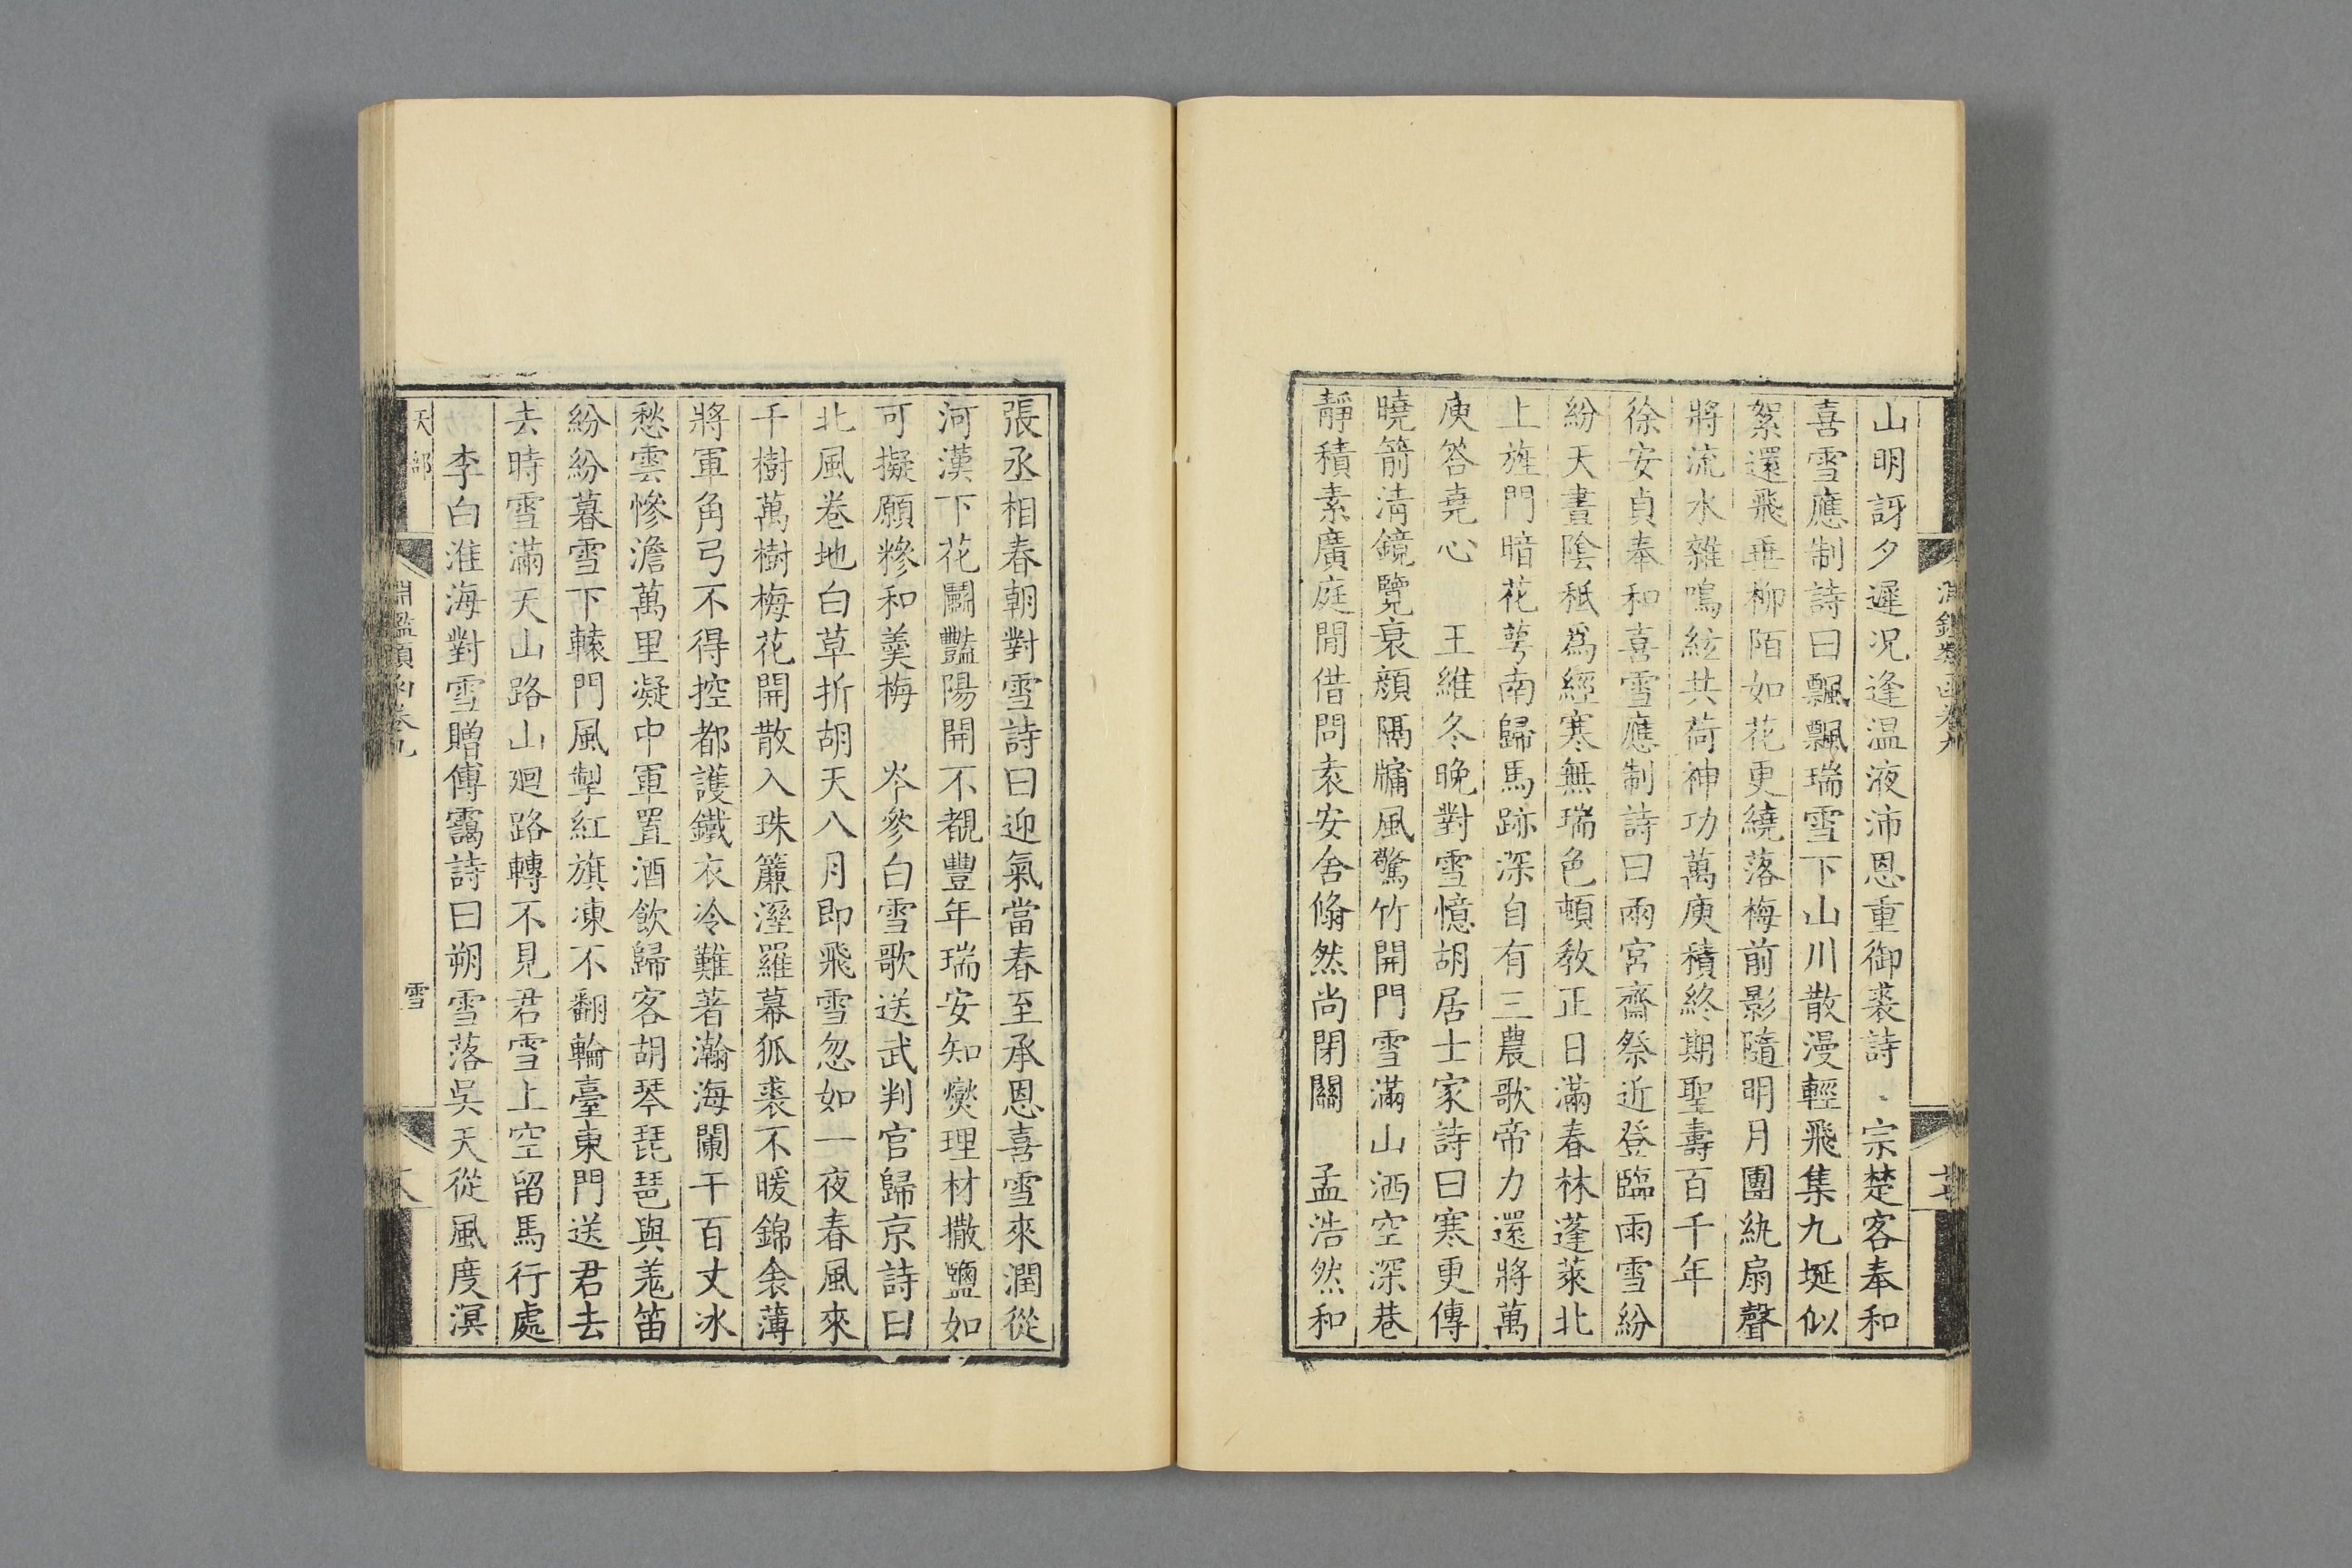 山明訝夕遲況逢温液沛恩重御裘詩　宗楚客奉和
喜雪應制詩曰飄飄瑞雪下山川散漫輕飛集九埏似
絮還飛垂柳陌如花更繞落梅前影隨明月團紈扇聲
將流水雜鳴絃共荷神功萬庾積終期聖壽百千年
徐安貞奉和喜雪應制詩曰雨宮齋祭近登臨雨雪紛
紛天晝陰秪為經寒無瑞色頓教正日滿春林蓬萊北
上旌門暗花萼南歸馬跡深自有三農歌帝力還將萬
庾答堯心　王維冬晚對雪憶胡居士家詩曰寒更傳
曉箭清鏡覽衰顔隔牗風驚竹開門雪滿山洒空深巷
靜積素廣庭閒借問袁安舍翛然尚閉關　孟浩然和
張丞相春朝對雪詩曰迎氣當春至承恩喜雪來潤從
河漢下花鬬豔陽開不覩豐年瑞安知爕理材撒鹽如
可擬願糝和羹梅　岑參白雪歌送武判官歸京詩曰
北風卷地白草折胡天八月即飛雪忽如一夜春風來
千樹萬樹梅花開散入珠簾溼羅幕狐裘不暖錦衾薄
將軍角弓不得控都護鐵衣冷難著瀚海闌干百丈冰
愁雲慘澹萬里凝中軍置酒飲歸客胡琴琵琶與羗笛
紛紛暮雪下轅門風掣紅旗凍不翻輪臺東門送君去
去時雪滿天山路山廻路轉不見君雪上空留馬行處
李白淮海對雪贈傅靄詩曰朔雪落吳天從風度溟
天部
淵鑑類函卷九
雪